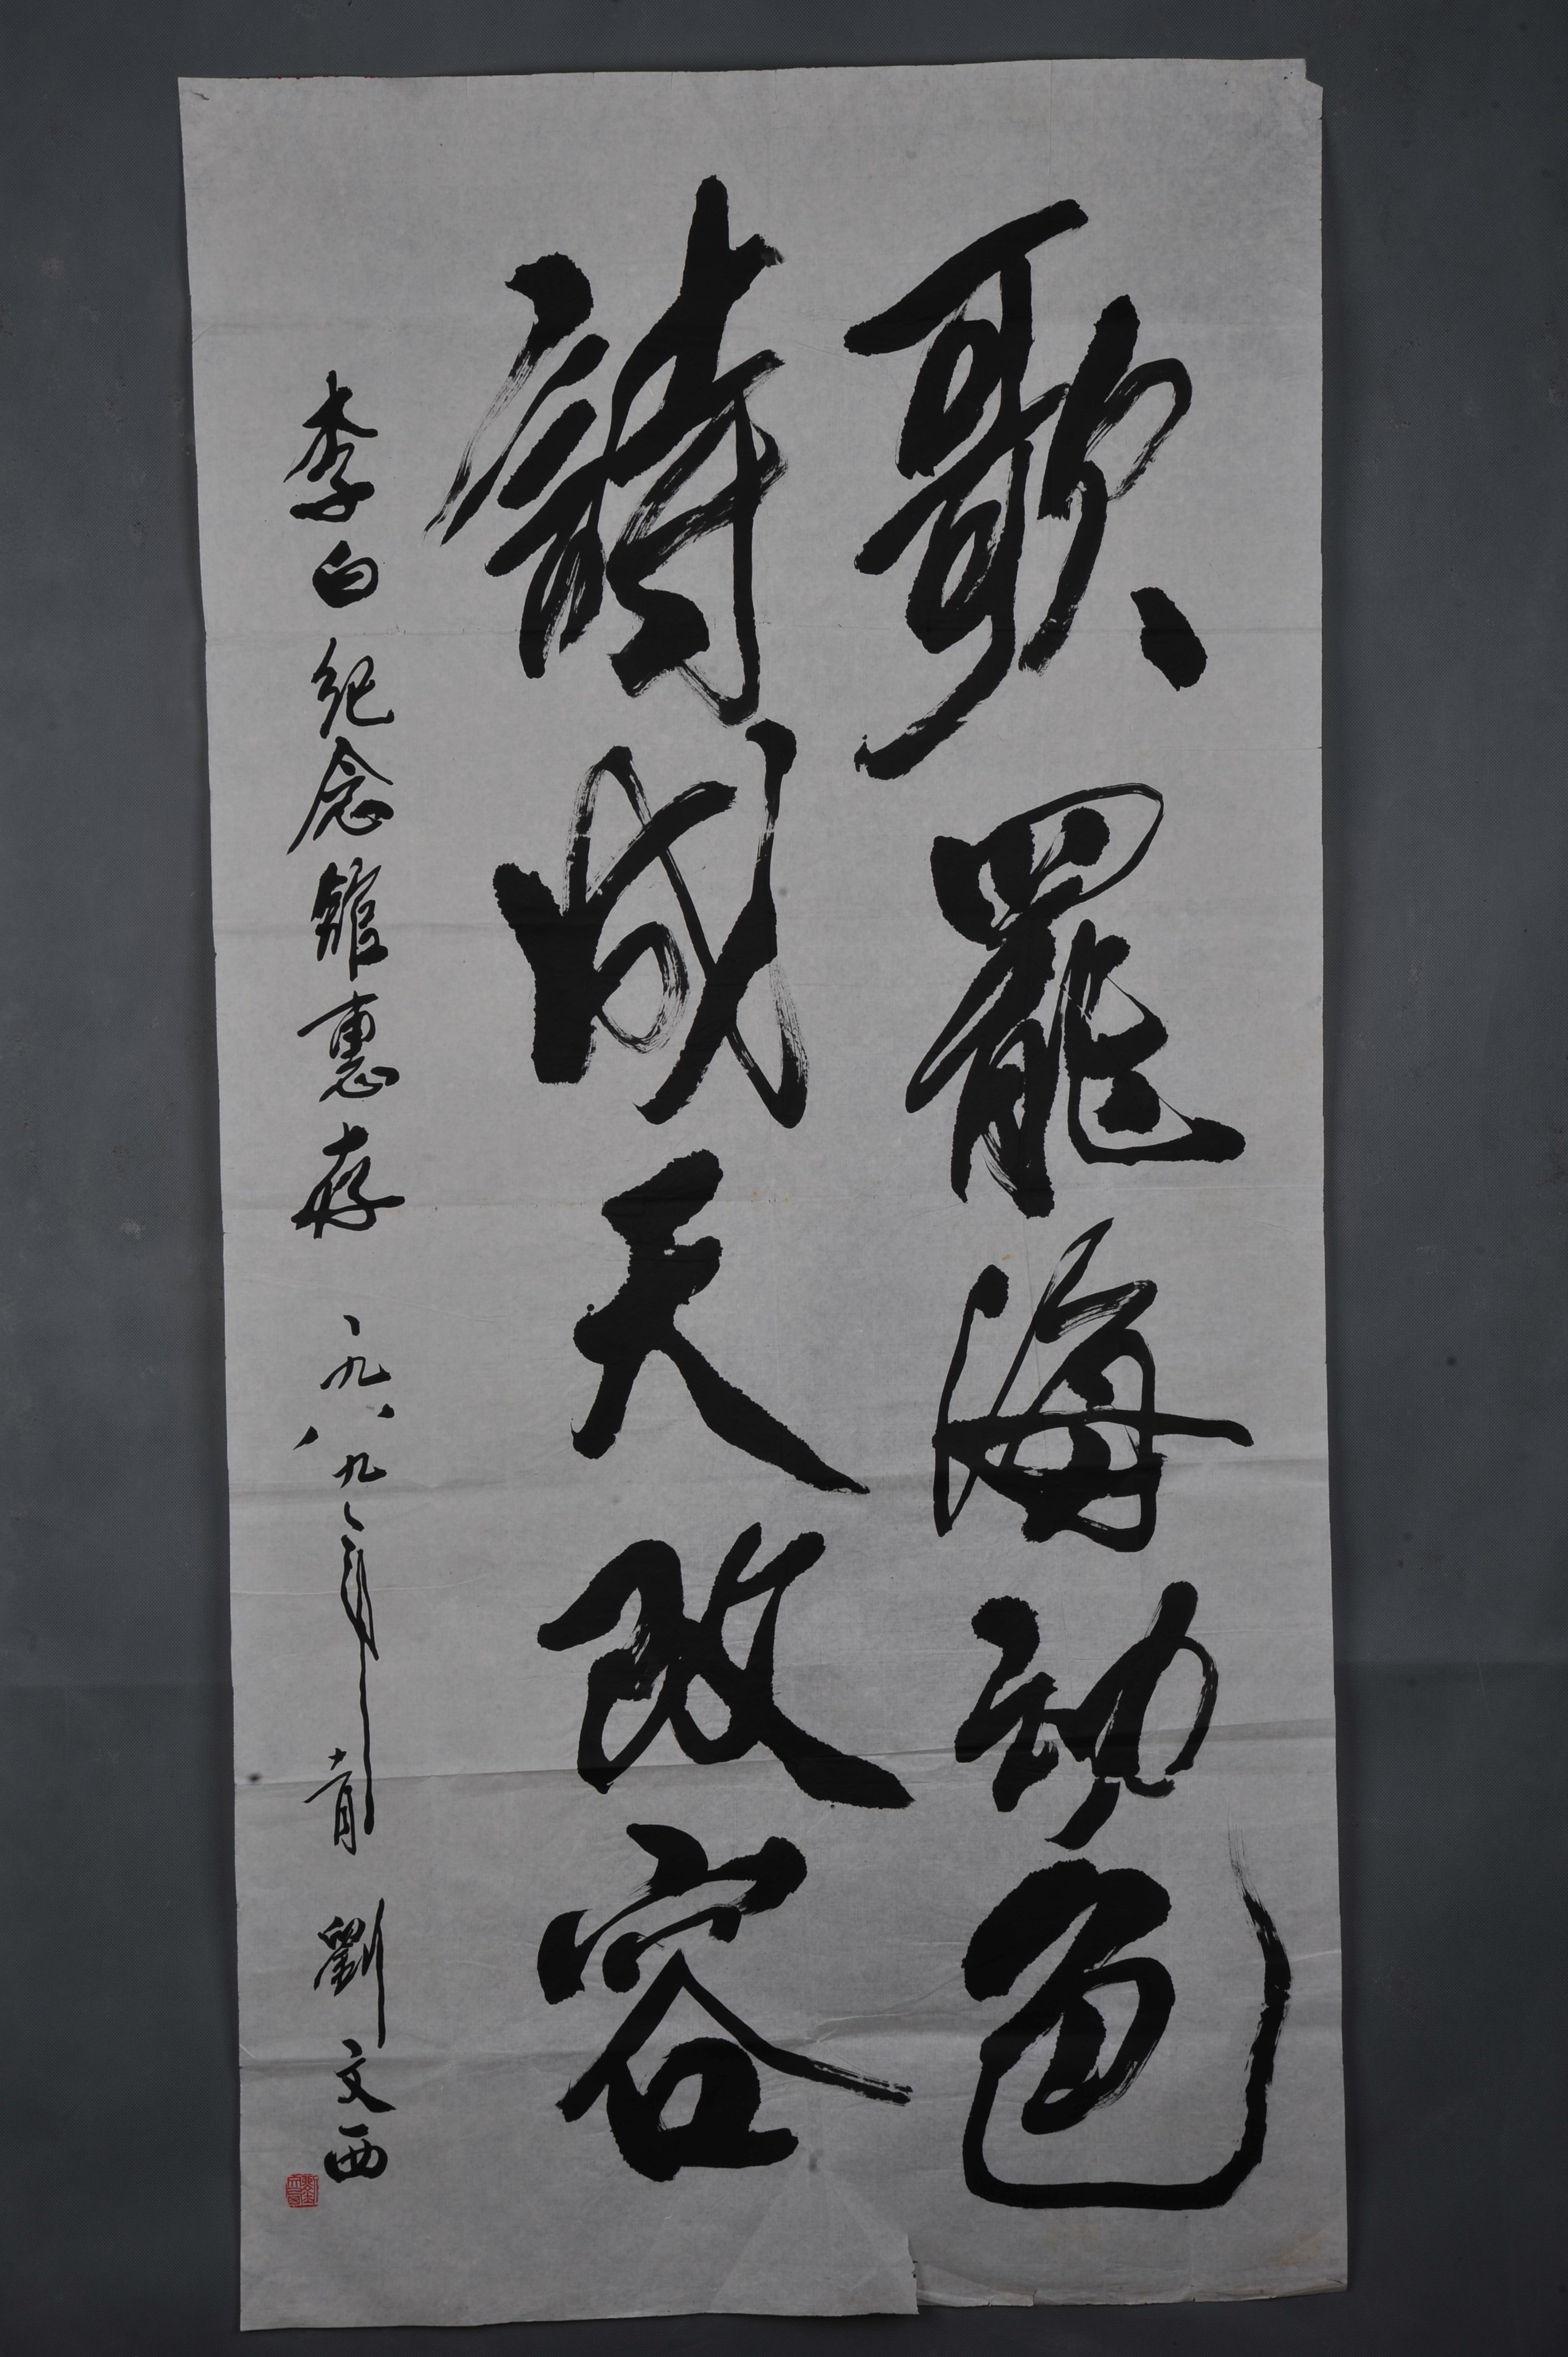 歌罷海動色
詩成天改容
李白纪念館惠存 一九八九年十一月 劉文西